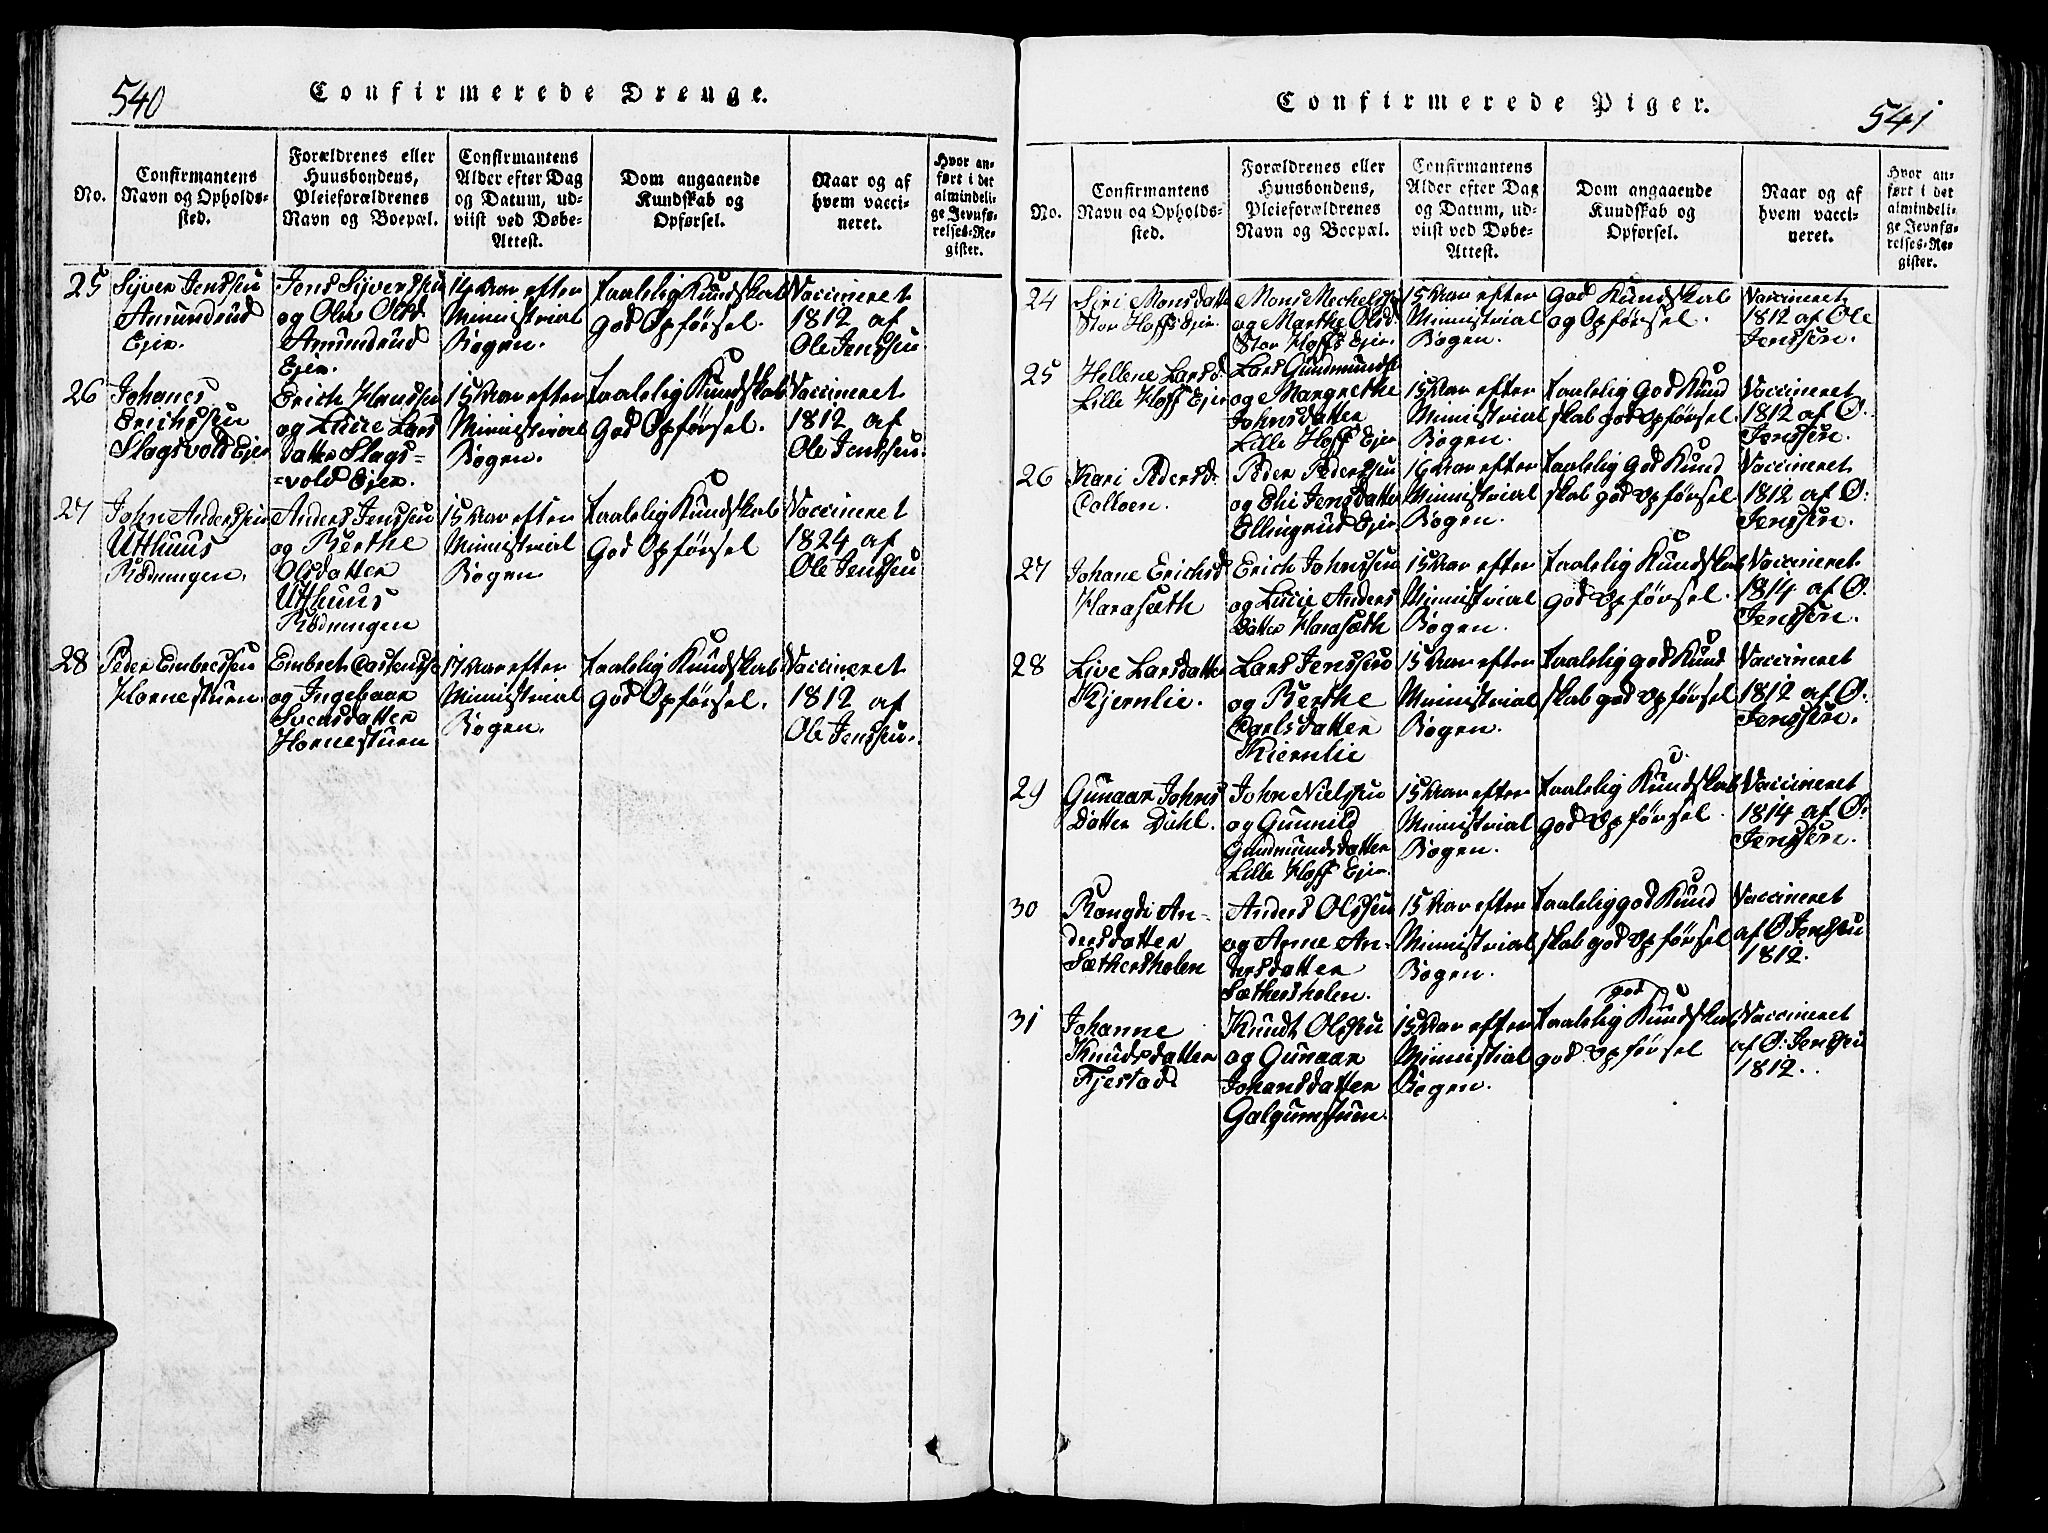 540
Confirmerede Drenge.
No.
Confirmantens
Navn og Opholds-
sted.
Forældrenes eller
Huusbondens,
Pleieforældrenes
Navn og Boepæl.
Confirmantens
Alder efter Dag
og Datum, ud-
viist ved Døbe-
Attest.
Dom angaaende
Kundskab og
Opførsel.
Naar og af
hvem vacci-
neret.
Hvor an-
ført i det
almindeli-
ge Jevnfø-
relses-Re-
gister.
25
Syver Jenssen
Amundrud
Ejer.
Jens Syverssen
og Olea Olsd
Amundrud
Ejer.
14 Aar efter
Ministrial
Bogen.
taalelig Kundskab
God Opførsel.
Vaccineret
1812 af
Ole Jenssen
26
Johanes
Erichssen
Slagsvold Ejer
Erich Hanssen
og Lucie Lars
datter Slags=
=vold Ejer.
15 Aar efter
Ministrial
Bogen.
taalelig Kundskab
God Opførsel.
Vaccineret
1812 af
Ole Jenssen.
27
John Anderssen
Utthuus
Rødningen.
Anders Jenssen
og Berthe
Olsdatter
Utthuus
Rødningen
15 Aar efter
Ministrial
Bogen
taalelig Kundskab
God Opførsel
Vaccineret
1824 af
Ole Jenssen
28
Peder Embretssen
Hornestuen.
Embret Castensse
og Ingebaar
Svensdatter
Hornestuen
17 Aar efter
Ministrial
Bogen.
taalelig Kundskab
God Opførsel.
Vaccineret
1812 af
Ole Jenssen.
541
Confirmerede Piger.
No.
Confirmantens
Navn og Opholds-
sted.
Forældrenes eller
Huusbondens,
Pleieforældrenes
Navn og Boepæl.
Confirmantens
Alder efter Dag
og Datum, ud-
viist ved Døbe-
Attest.
Dom angaaende
Kundskab og
Opførsel.
Naar og af
hvem vacci-
neret.
Hvor an-
ført i det
almindeli-
ge Jevnfø-
relses-Re-
gister.
24
Siri Monsdatte
Stor Hoffs Ejer.
Mons Mechelss
og Marthe Olsd.
Stor Hoffs Ejer.
15 Aar efter
Ministrial
Bogen.
God Kundskab
og Opførsel.
Vaccineret
1812 af Ole
Jenssen.
25
Hellene Larsd.
Lille Hoff Ejer
Lars Gundmunds
og Margrethe
Johnsdatter
Lille Hoff Ejer
15 Aar efter
Ministrial
Bogen.
taalelig God Kund
skab god Opførsel
Vaccineret
1812 af O.
Jenssen.
26
Kari Pedersd.
Colloen.
Peder Pederssen
og Eli Jensdatte
Ellingrud Ejer
16 Aar efter
Ministrial
Bogen.
taalelig God Kund
skab god Opførsel
Vaccineret
1812 af O:
Jenssen.
27
Johane Erichsd
Harasæth
Erich Johnssen
og Lucie Anders
datter Harasæth
15 Aar efter
Ministrial
Bogen.
taalelig Kundskab
god Opførsel.
Vaccineret
1814 af O.
Jenssen.
28
Live Larsdatte
Kjernlie.
Lars Jenssen
og Berthe
Carlsdatter
Kiernlie
15 Aar efter
Ministrial
Bogen.
taalelig god Kund
skab god Opførsel
Vaccineret
1812 af O.
Jenssen.
29
Gunaar Johns
datter Dahl.
John Nielssen
og Gunnild
Gudmundsdatter
Lille Hoff Ejer.
15 Aar efter
Ministrial
Bogen.
taalelig Kundskab
god Opførsel
Vaccineret
1814 af O:
Jenssen.
30
Rangdi An-
dersdatter
Sæthersholen
Anders Olssen
og Anne An-
dersdatter
Sæthersholen.
15 Aar efter
Ministrial
Bogen.
taalelig god Kund
skab god Opførsel
Vaccineret
af O Jenssen
1812.
31
Johanne
Knudsdatter
Fjestad
Knudt Olssen
og Gunaar
Johansdatter
Galgumstuen.
15 Aar efter
Ministrial
Bogen.
god
taalelig Kundskab
god Opførsel
Vaccineret
af O. Jenssen
1812.